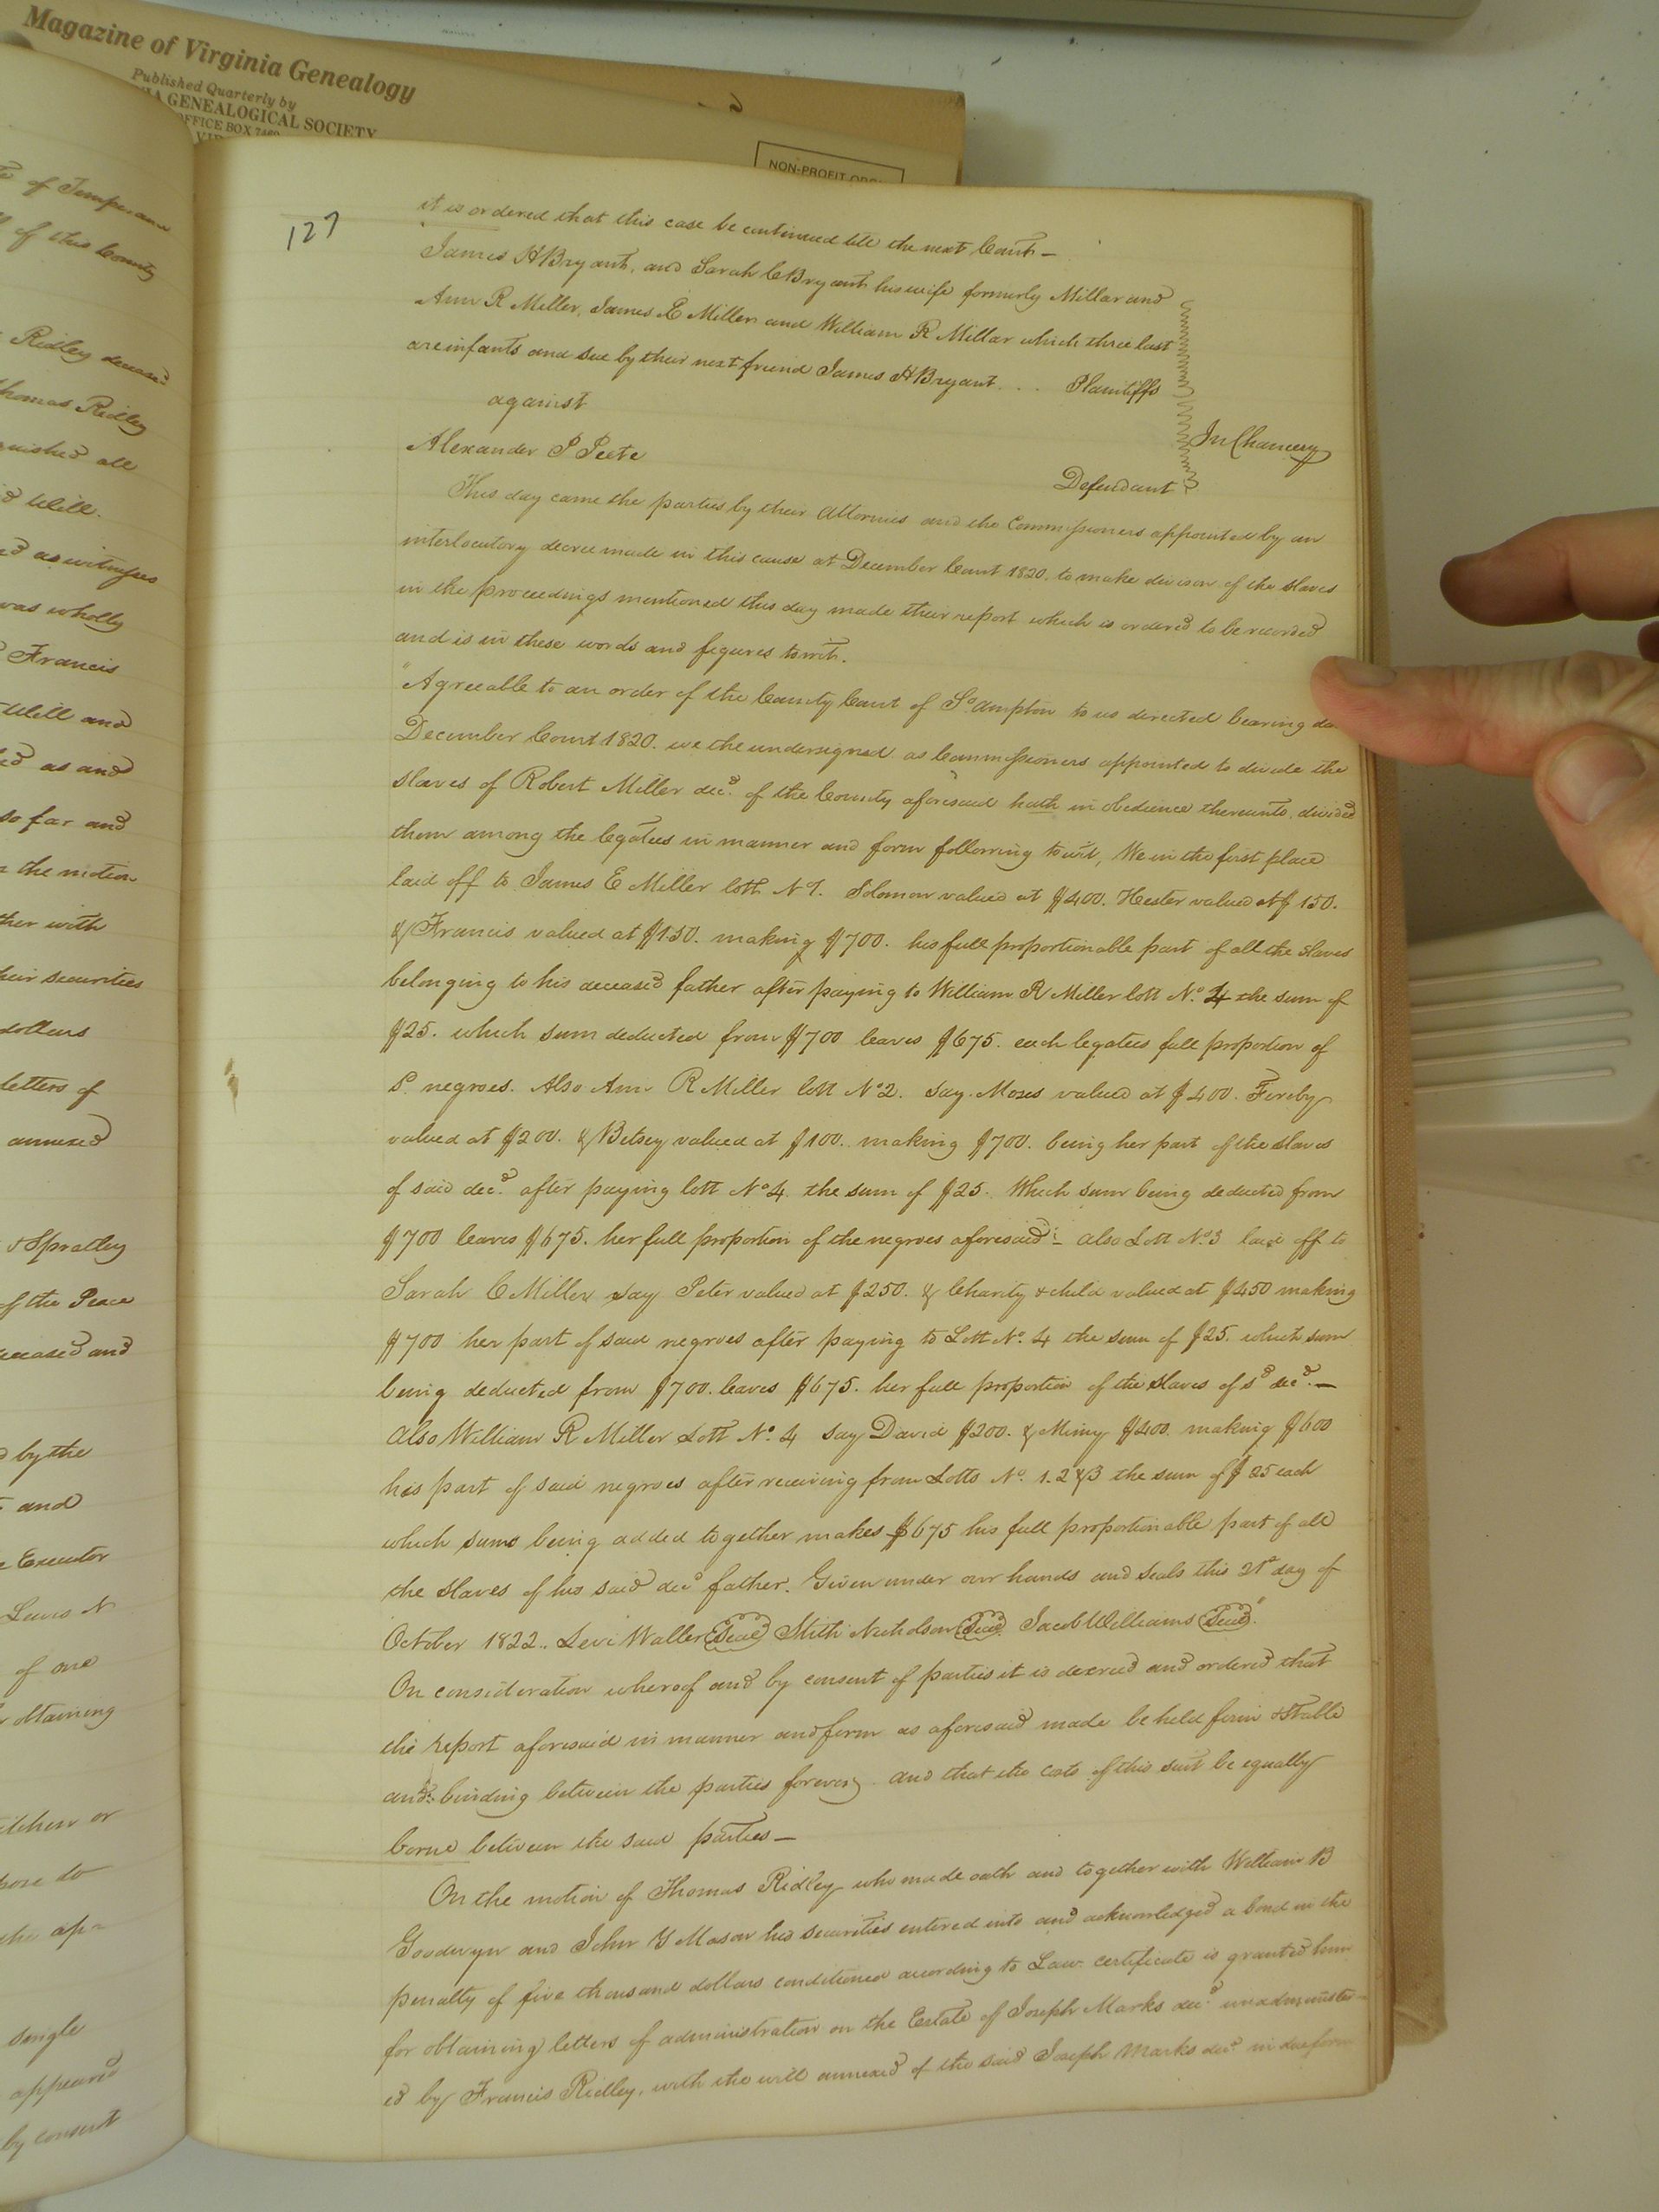 Magazine of Virginia Genealogy
Published Quarterly by
GENEALOGICAL SOCIETY
OFFICE BOX
NON-PROFIT
of Temperance
of this County
Ridley deceased
Thomas Ridley
all
Will.
as witnesses
was wholly
Francis
Will and
as and
so far and
the motion
with
their securities
dollars
letters of
annexed
& Spratley
of the Peace
deceased and
by the
and
Executor
Lewis N
of one
obtaining
or
to
the ap=
single
appeared
by consent
127
it is ordered that this case be continued till the next Court —
James H Bryant, and Sarah C Bryant his wife formerly Millar and
Ann R Miller, James E Miller and William R Millar which three last
are infants and sue by their next friend James H Bryant . . . Plaintiffs
against
In Chancery
Alexander P Peete
Defendant
This day came the parties by their Attornies and the Commissioners appointed by an
interlocutory decree made in this cause at December Court 1820. to make divison of the slaves
in the proceedings mentioned this day made their report which is ordered to be recorded
and is in these words and figures towit.
"Agreeable to an order of the County Court of So.ampton to us directed bearing
December Court 1820. we the undersigned as Commissioners appointed to divide the
slaves of Robert Miller decd. of the County aforesaid hath in obedience thereunto, divided
them among the legatees in manner and form following towit, We in the first place
laid off to James E Miller lott No 1. Solomon valued at $400. Hester valued at $150.
& Francis valued at $150. making $700. his full proportionable part of all the slaves
belonging to his deceased father after paying to William R Miller lott No. 4 the sum of
$25. which sum deducted from $700 leaves $675. each legatees full proportion of
sd. negroes. Also Ann R Miller lott No 2. say. Moses valued at $400. Fereby
valued at $200. & Betsey valued at $100. making $700. being her part of the slaves
of said decd. after paying lott No 4 the sum of $25. Which sum being deducted from
$700 leaves $675. her full proportion of the negroes aforesaid:– also Lott No. 3 laid off to
Sarah C Miller say Peter valued at $250. & Charity & child valued at $450 making
$700 her part of said negroes after paying to Lott No. 4 the sum of $25. which sum
being deducted from $700. leaves $675. her full proportion of the slaves of sd decd. —
Also William R Miller Lott No. 4 say David $200. & Miny $400. making $600
his part of said negroes after receiving from Lotts No. 1. 2 & 3 the sum of $25 each
which sums being added together makes $675 his full proportionable part of all
the slaves of his said decd father. Given under our hands and seals this 21st day of
October 1822. Levi Waller Seal Mith Nicholson Seal Jacob Williams Seal"
On consideration whereof and by consent of parties it is decreed and ordered that
the report aforesaid in manner and form as aforesaid made be held firm & stable
and binding between the parties forever, and that the costs of this suit be equally
borne between the said parties —
On the motion of Thomas Ridley who made oath and together with William B
Goodwyn and John Y Mason his securities entered into and acknowledged a bond in the
penalty of five thousand dollars conditioned according to Law. certificate is granted him
for obtaining letters of administration on the Estate of Joseph Marks decd. unadminister=
ed by Francis Ridley, with the will annexed of the said Joseph Marks decd. in due form